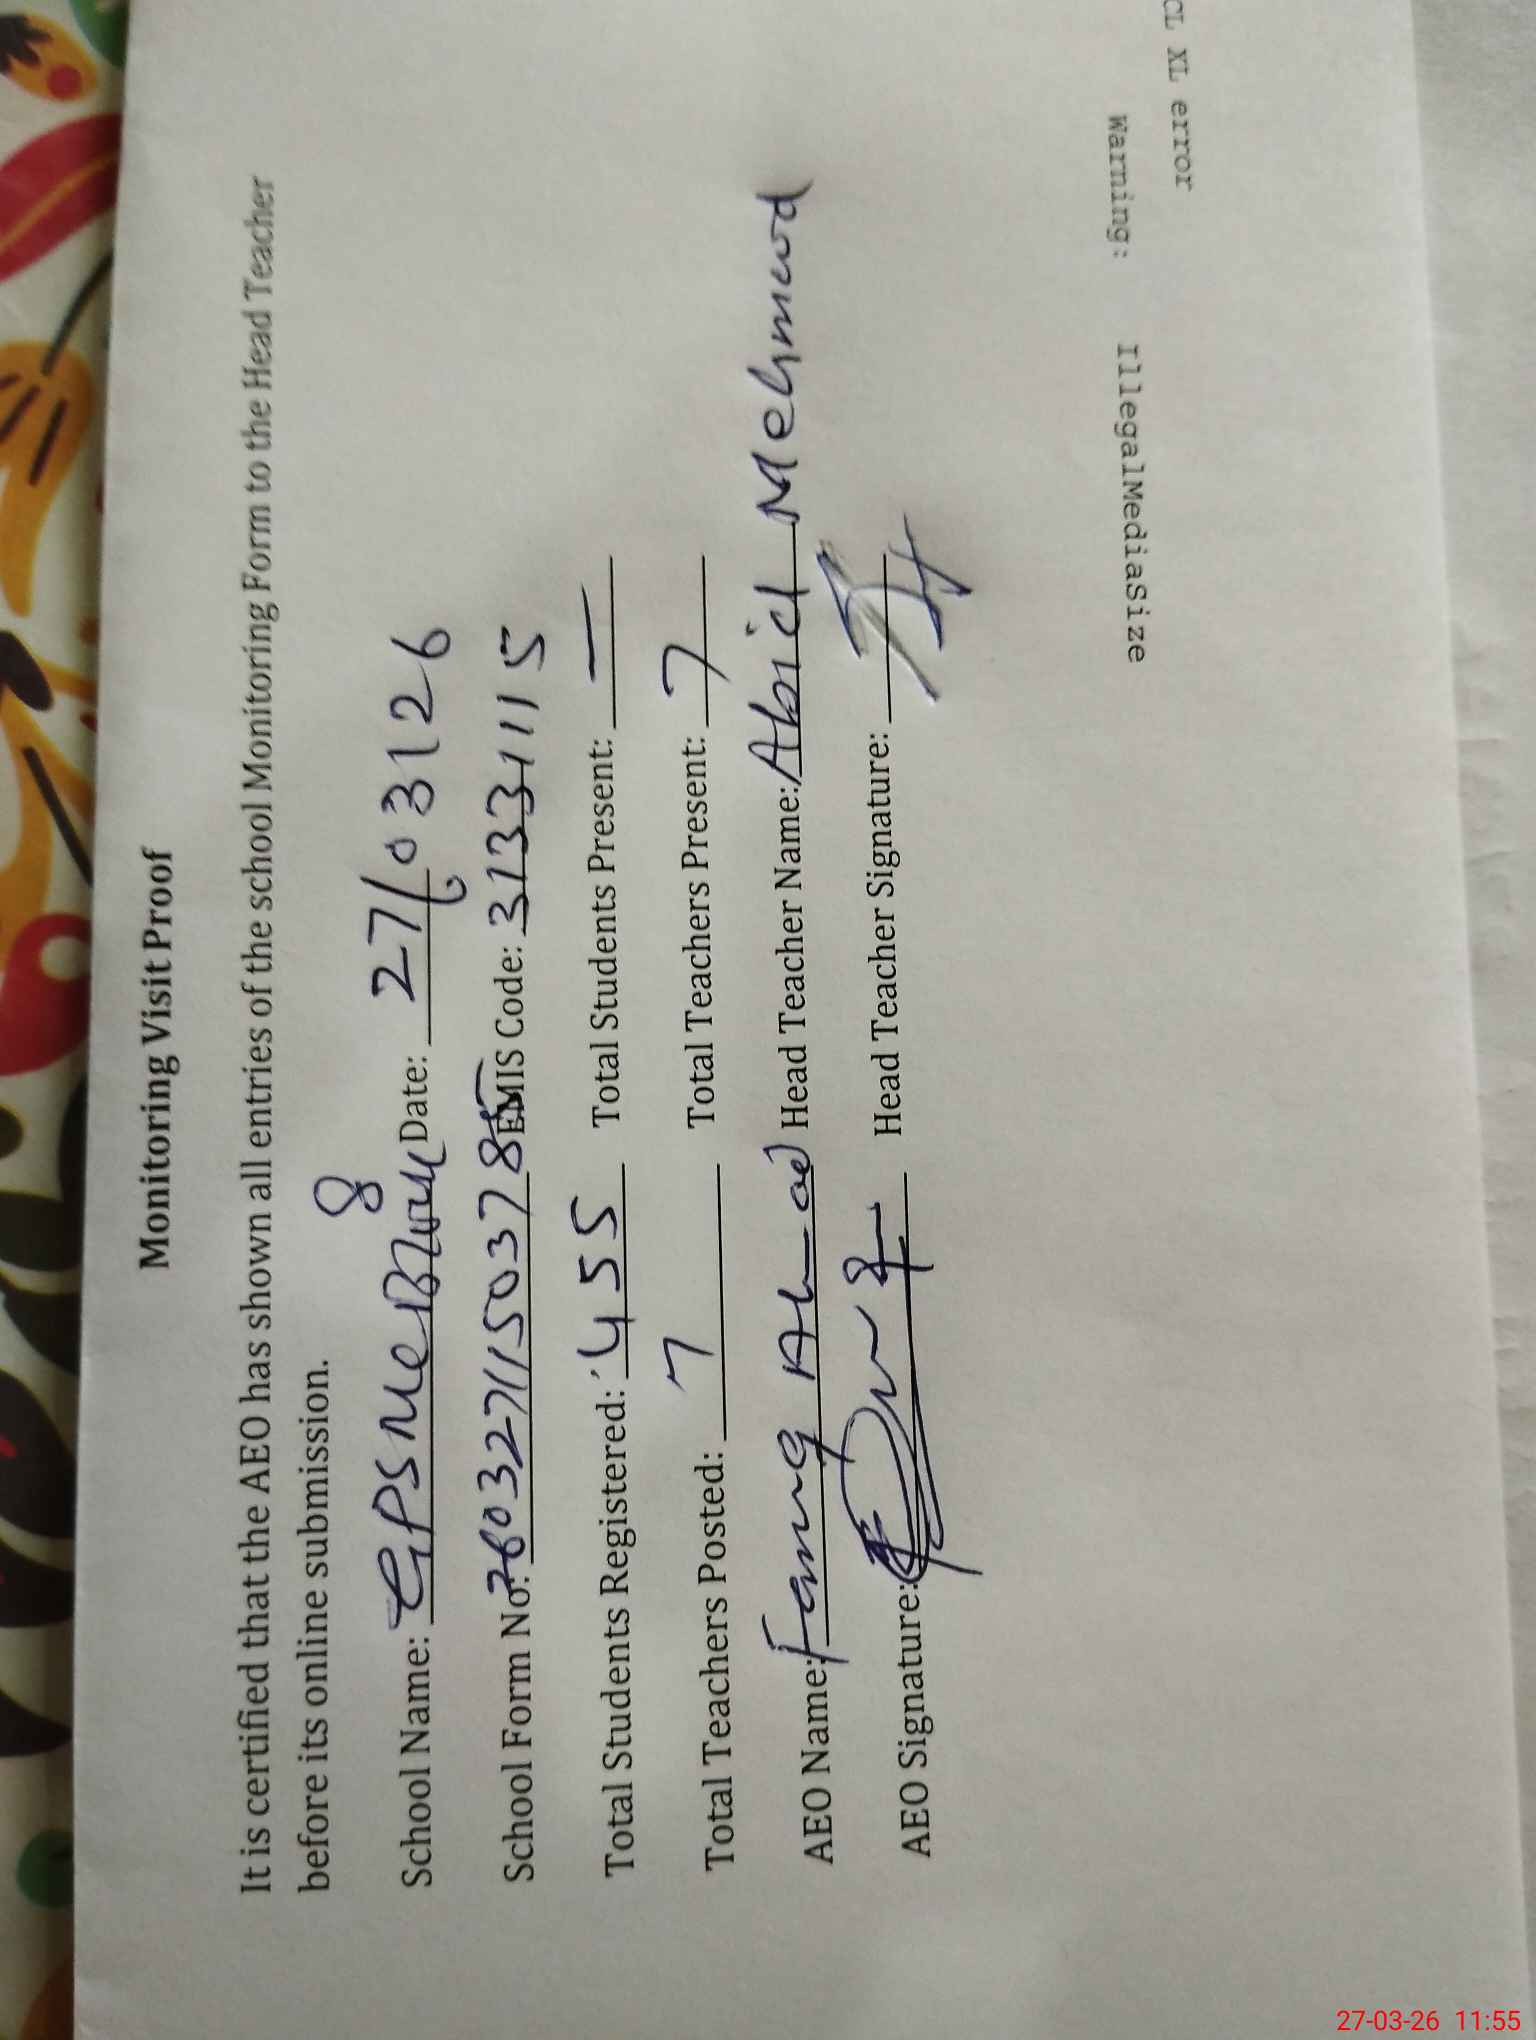 Monitoring Visit Proof
It is certified that the AEO has shown all entries of the school Monitoring Form to the Head Teacher
before its online submission.
8
School Name: GPS Date: 27/03/26
School Form No: EMIS Code: 31331115
Total Students Registered: 455 Total Students Present: —
Total Teachers Posted: 7 Total Teachers Present: 7
AEO Name: Head Teacher Name: Abid Mehmood
AEO Signature: Head Teacher Signature:
CL XL error
Warning: IllegalMediaSize
27-03-26 11:55